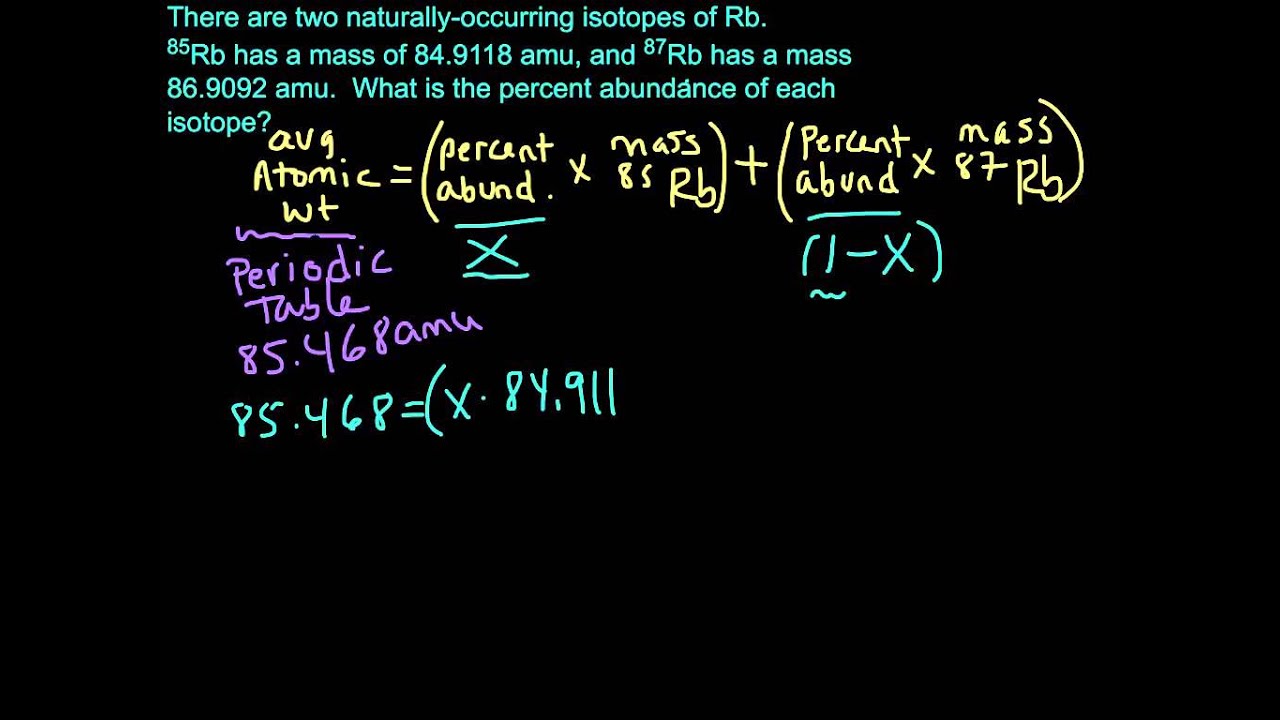 There are two naturally-occurring isotopes of Rb.
⁸⁵Rb has a mass of 84.9118 amu, and ⁸⁷Rb has a mass
86.9092 amu. What is the percent abundance of each
isotope?
avg Atomic Wt = (percent abund. x mass 85 Rb) + (Percent abund x mass 87 Rb)
X (1-X)
Periodic
Table
85.468amu
85.468=(X · 84.911